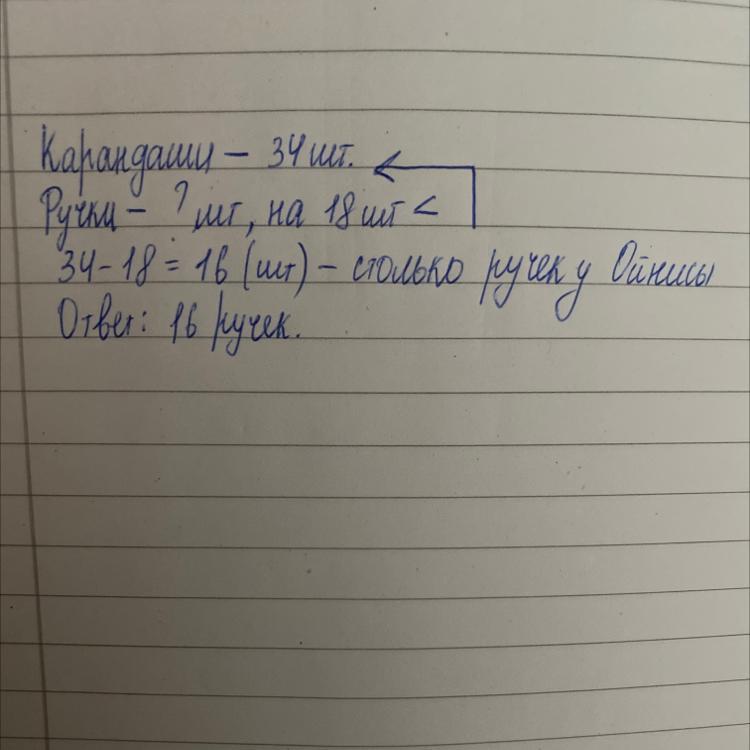 Карандаши – 34 шт.
Ручки – ? шт, на 18 шт <
34 – 18 = 16 (шт) – столько ручек у Ойнисы
Ответ: 16 ручек.